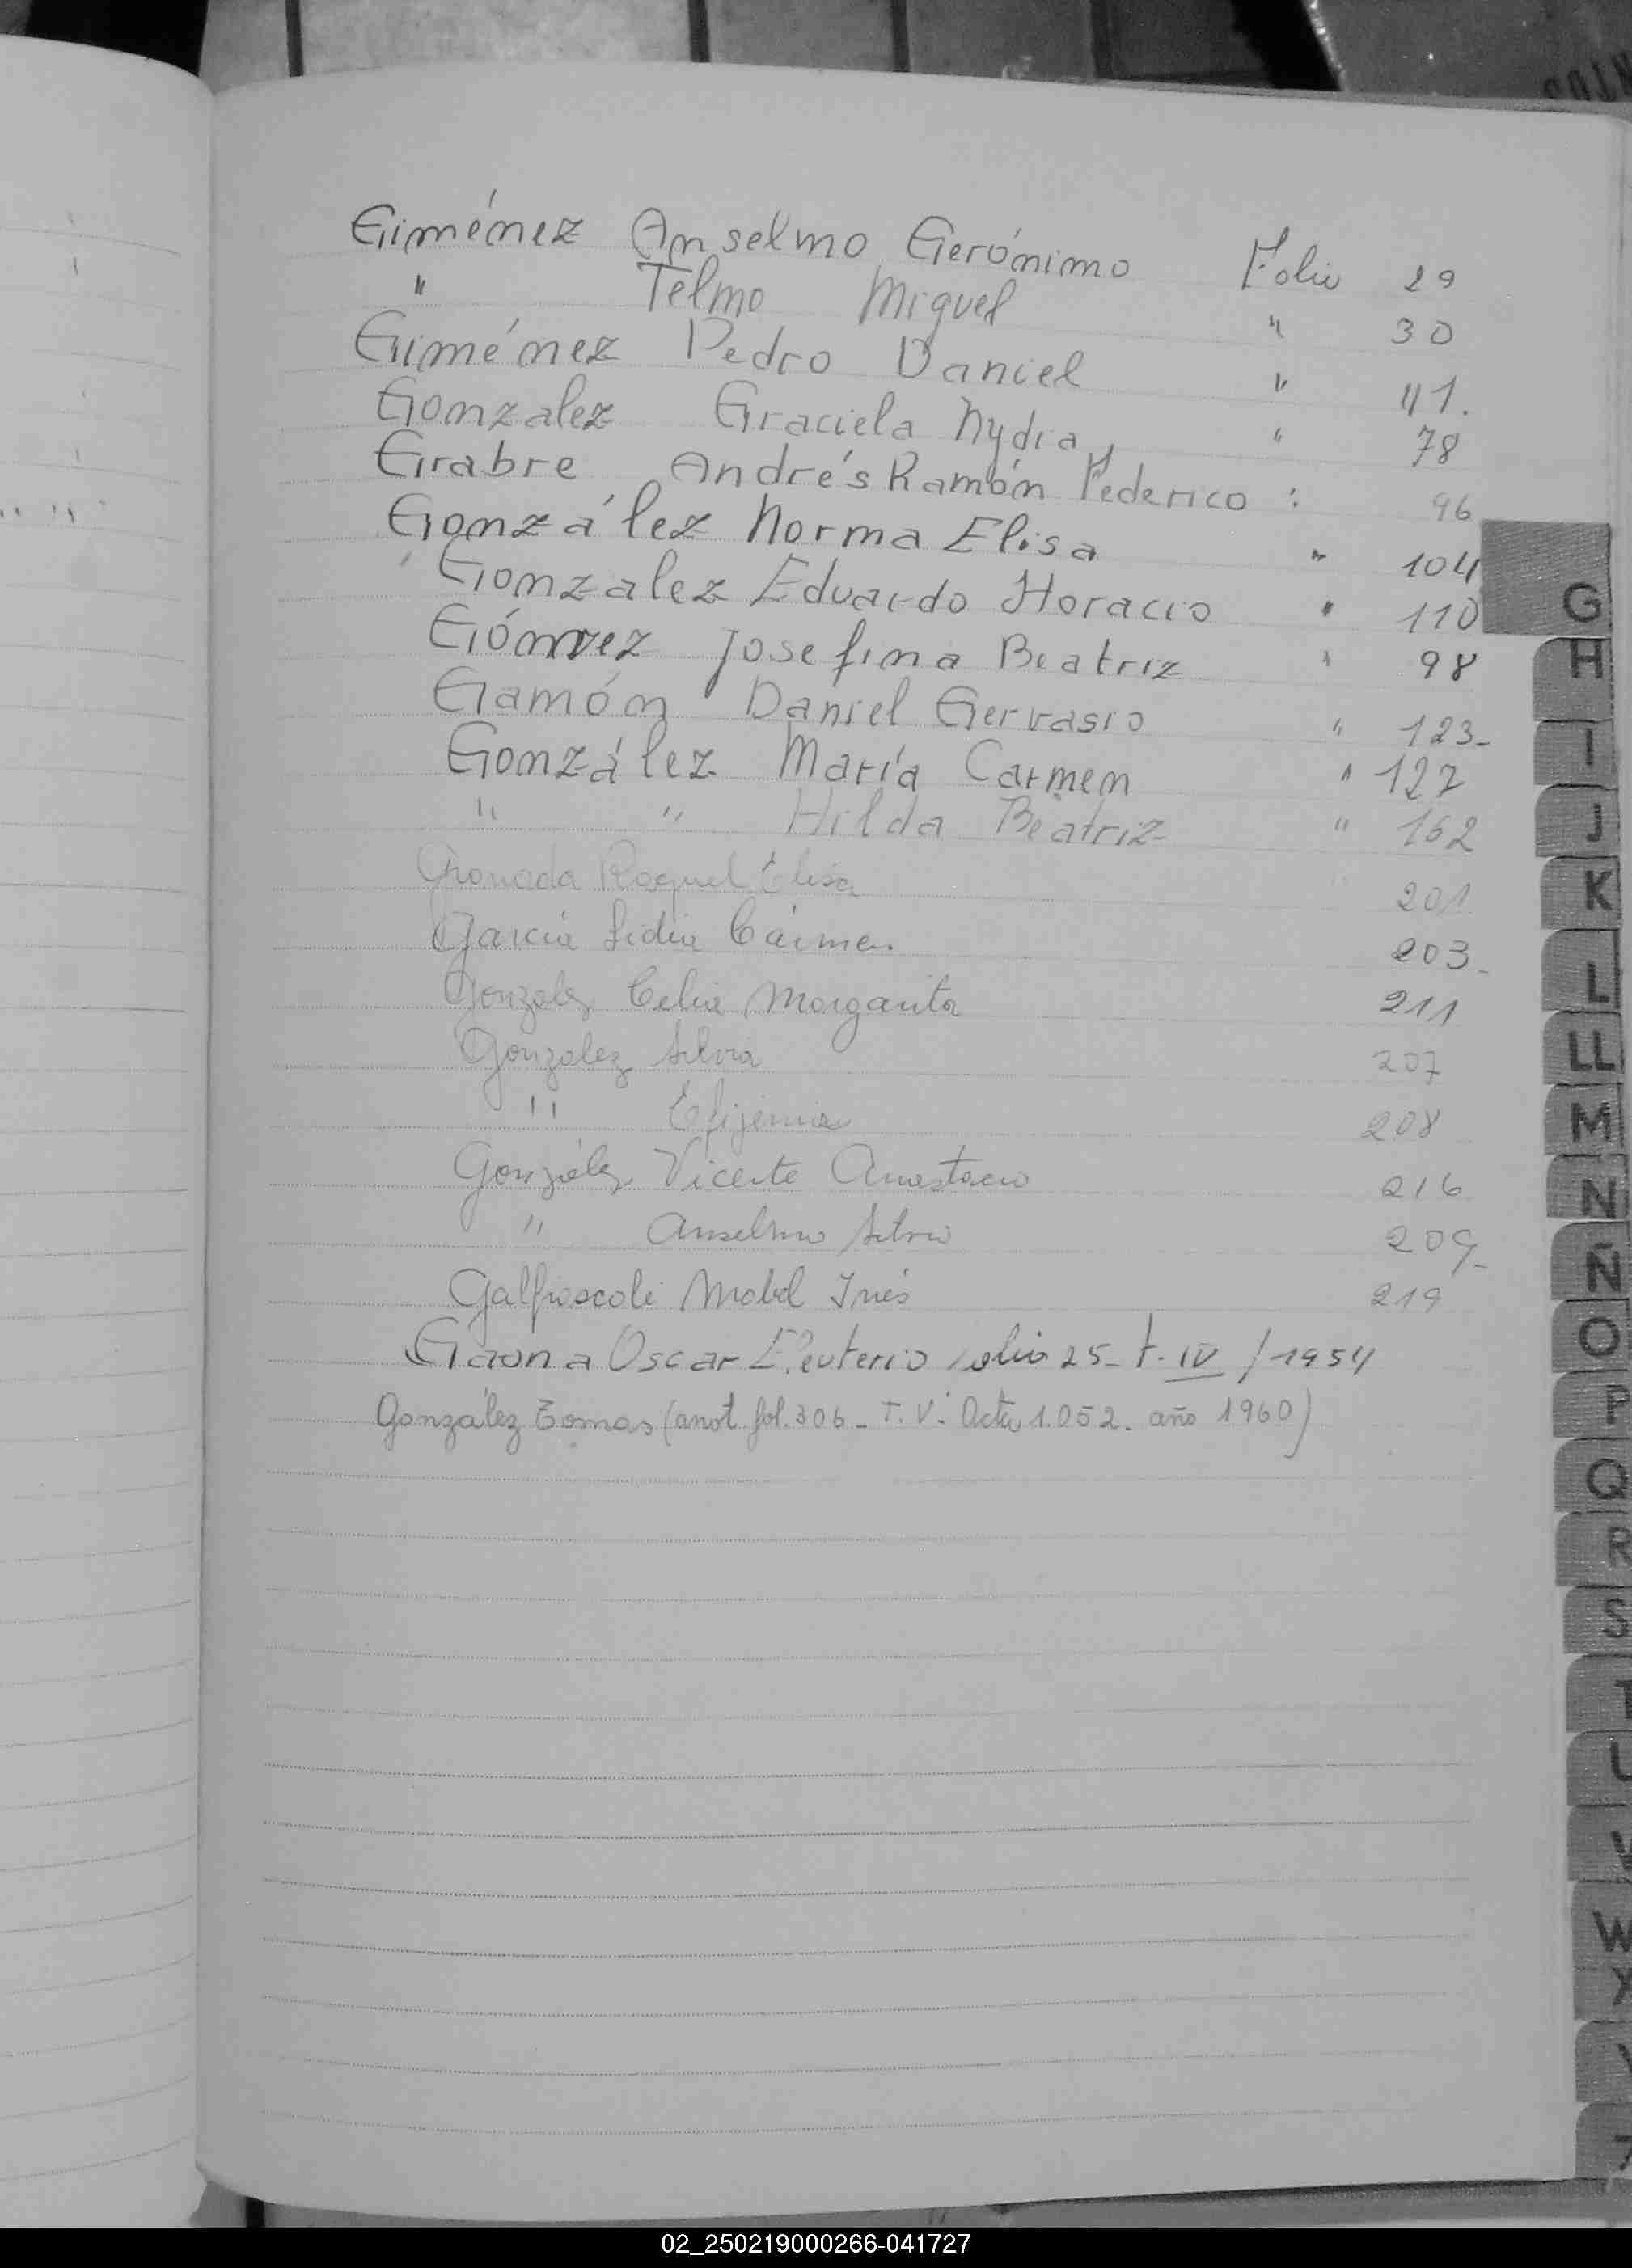 Giménez Anselmo Gerónimo Folio 29
" Telmo Miguel " 30
Giménez Pedro Daniel " 41.
Gonzalez Graciela Nydia " 78
Grabre Andrés Ramón Federico : 96
González Norma Elisa " 104
Gonzalez Eduardo Horacio " 110
Josefina Beatriz " 98
Gamón Daniel Gervasio " 123-
González María Carmen " 127
" " Hilda Beatriz " 162
Granada Raquel Elisa 201
García Lidia Cármen 203-
Gonzalez Celia Margarita 211
Gonzalez Silvia 207
" Efijenia 208
González Vicente Anastacio 216
" Anselmo Silvio 209-
Mabel Inés 219
Gaona Oscar Eleuterio folio 25- t. IV / 1954
González Tomas (anot. fol. 306 - T. V. Acta 1.052. año 1960)
G
H
I
J
K
L
LL
M
N
Ñ
O
P
Q
R
S
T
U
V
W
X
Y
Z
02_250219000266-041727